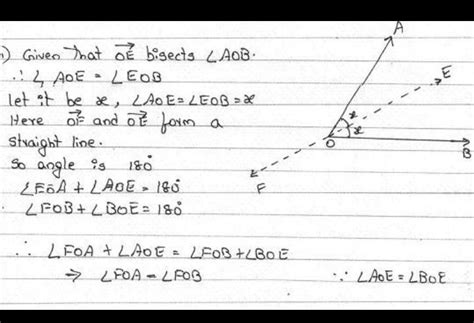 1) Given That OE bisects ∠AOB.
∴ ∠AOE = ∠EOB
let it be x, ∠AOE = ∠EOB = x
Here OF and OE form a
straight line.
So angle is 180°
∠FOA + ∠AOE = 180°
∠FOB + ∠BOE = 180°
∴ ∠FOA + ∠AOE = ∠FOB + ∠BOE
⇒ ∠FOA = ∠FOB ∵ ∠AOE = ∠BOE
A
E
x
x
O
B
F